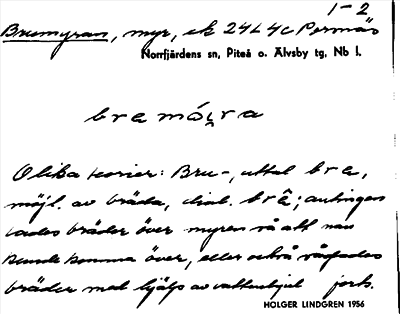 1-2
Brumyran, myr, ek 24L4c Permäs
Norrfjärdens sn, Piteå o. Älvsby tg, Nb l.
bremóira
Olika teorier: Bru-, uttal bre,
möjl. av bräda, dial. brê; antingen
lades bräder över myren så att man
kunde komma över, eller också vågades
bräder med hjälp av vattenhjul jorts.
HOLGER LINDGREN 1956